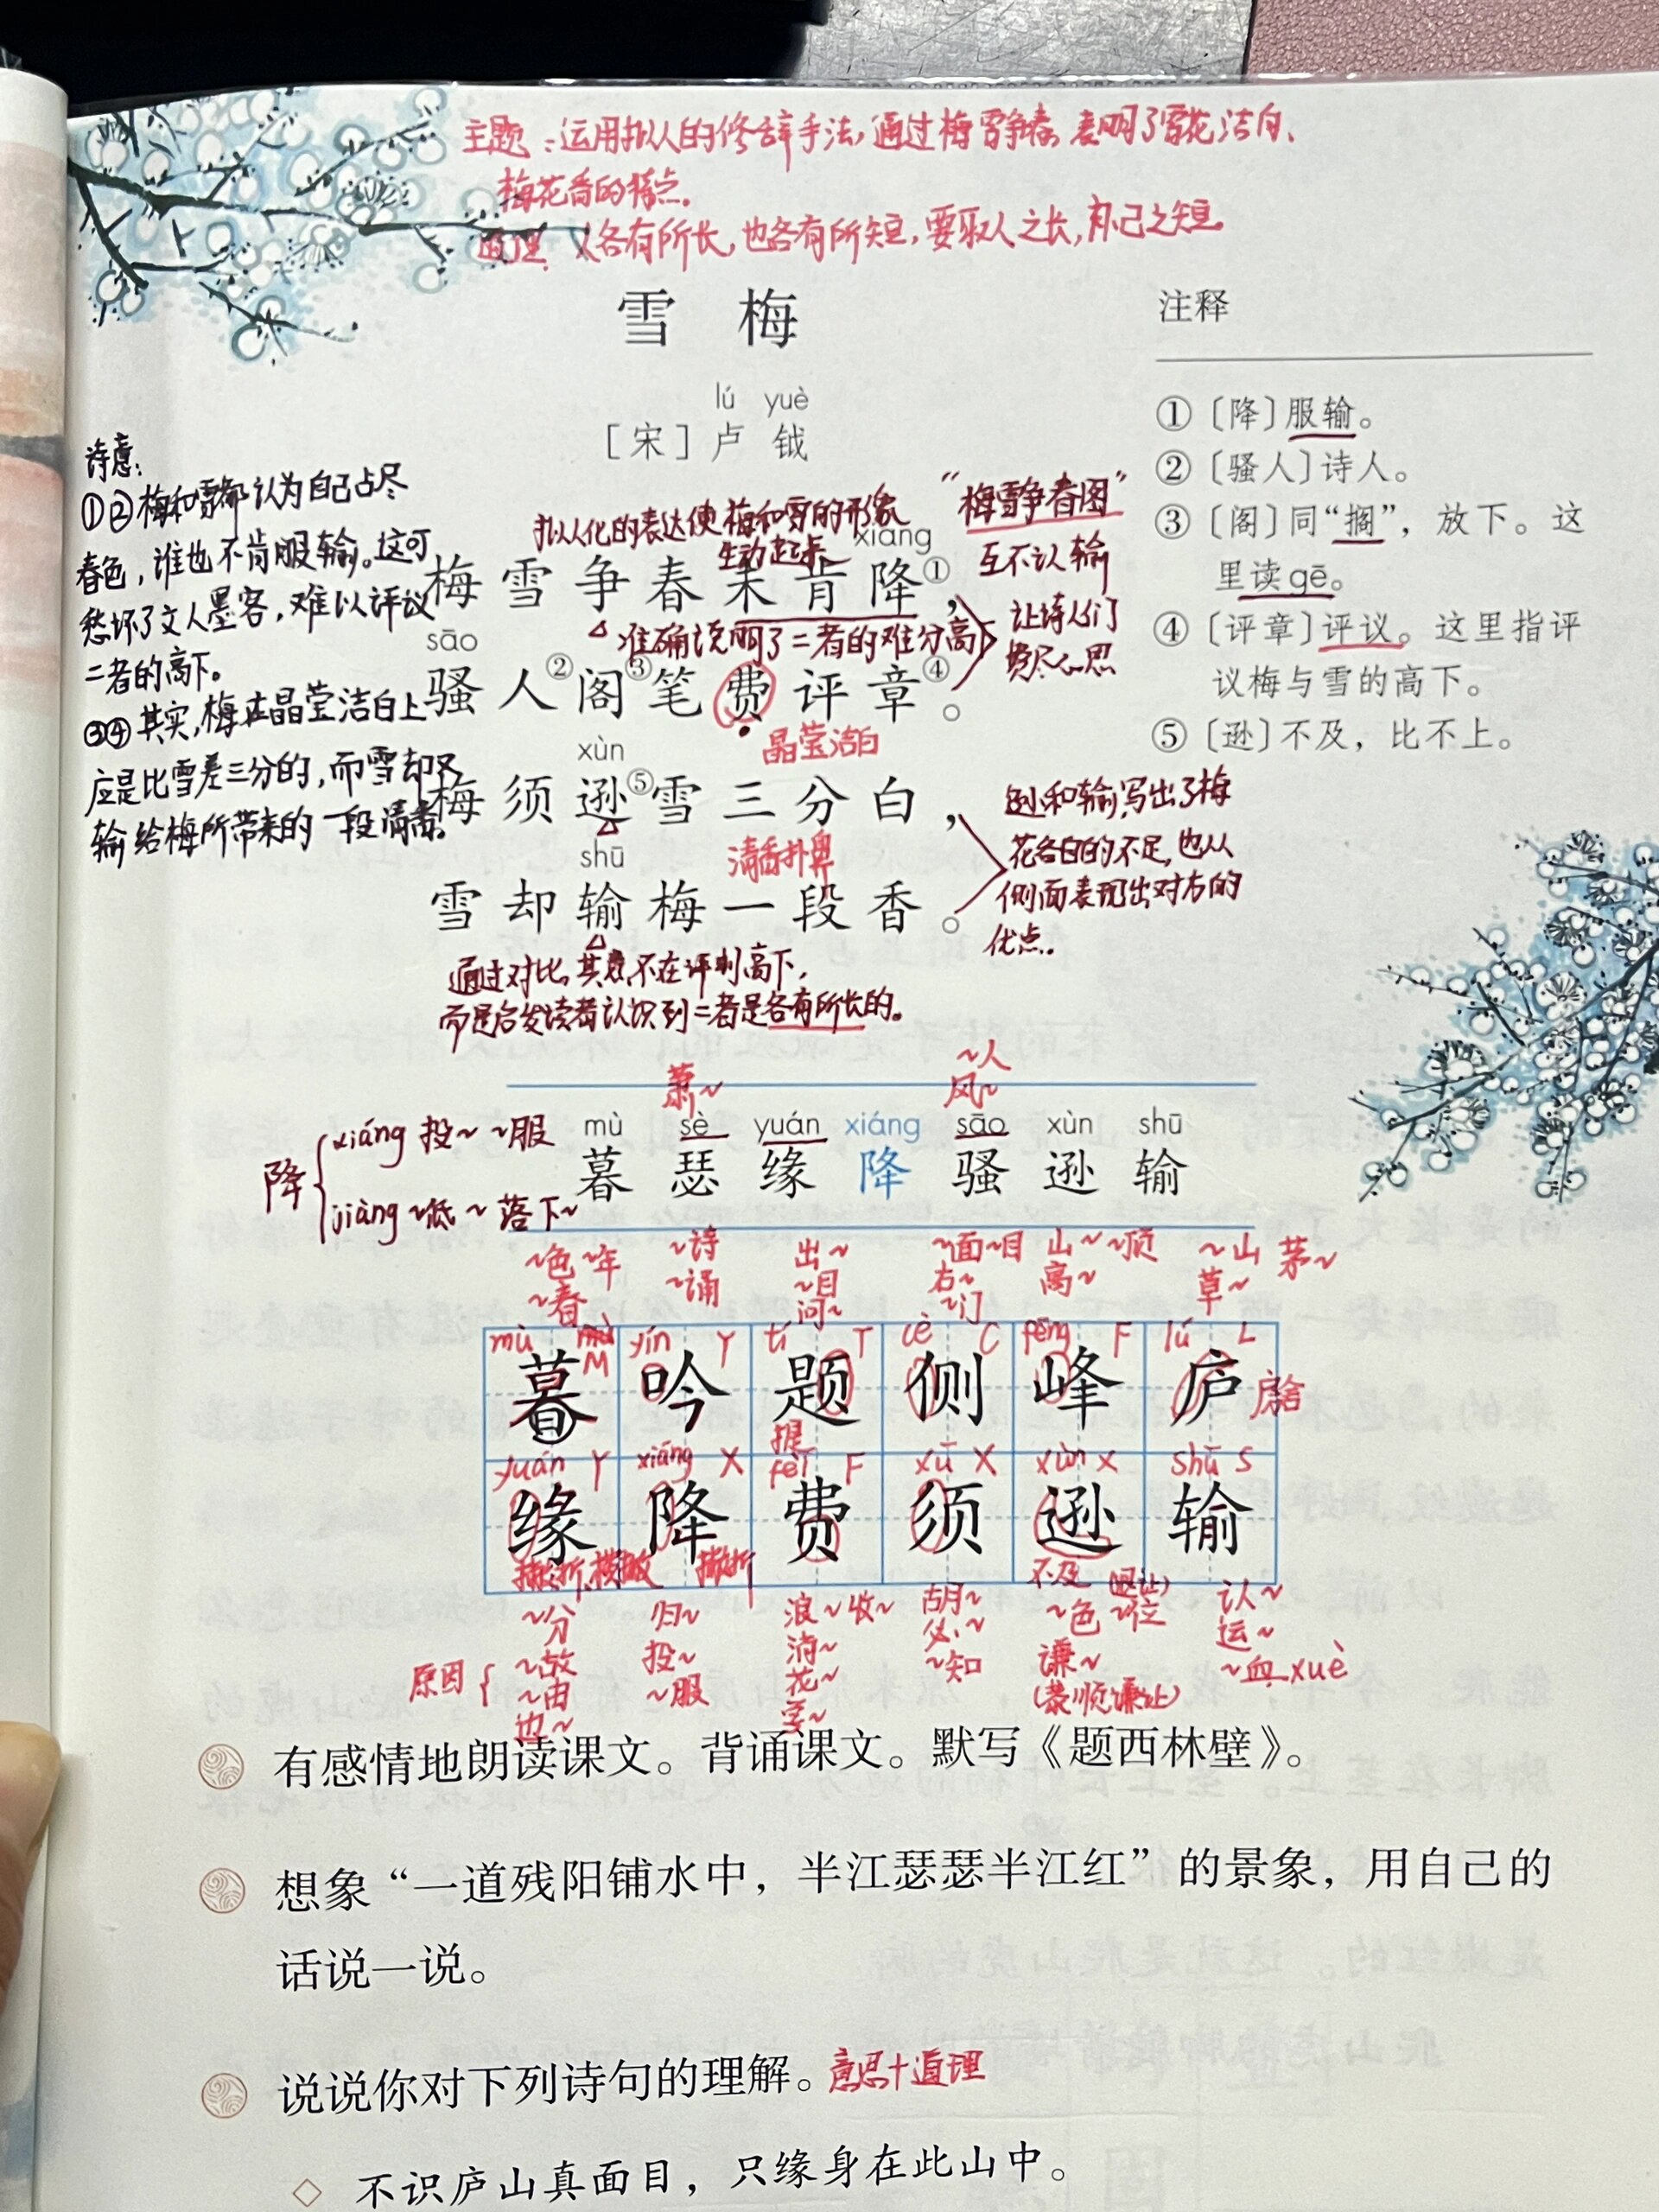 主题：运用拟人的修辞手法，通过梅雪争春，表明了雪花洁白、
梅花香的特点。
道理：人各有所长，也各有所短，要取人之长，补己之短。
雪 梅
lú yuè
［宋］卢 钺
注释
①〔降〕服输。
②〔骚人〕诗人。
③〔阁〕同“搁”，放下。这
里读 gē。
④〔评章〕评议。这里指评
议梅与雪的高下。
⑤〔逊〕不及，比不上。
诗意：
①②梅和雪都认为自己占尽
春色，谁也不肯服输。这可
愁坏了文人墨客，难以评议
二者的高下。
③④其实，梅在晶莹洁白上
应是比雪差三分的，而雪却又
输给梅所带来的一段清香。
拟人化的表达使梅和雪的形象
生动起来
xiáng
梅雪争春未肯降①，
准确说明了二者的难分高下
sāo
骚人②阁③笔费评章④。
晶莹洁白
xùn
梅须逊⑤雪三分白，
清香扑鼻
shū
雪却输梅一段香。
“梅雪争春图”
互不认输
让诗人们
费尽心思
逊和输，写出了梅
花各自的不足，也从
侧面表现出对方的
优点。
通过对比，其意不在评判高下，
而是启发读者认识到二者是各有所长的。
萧~
~人
风~
降
xiáng 投~ ~服
jiàng ~低 ~落 下~
mù sè yuán xiáng sāo xùn shū
暮 瑟 缘 降 骚 逊 输
~色 ~年 ~诗 出~ ~面 ~目 山~ ~顶 ~山 茅~
~春 ~诵 ~目 右~ 高~ 草~
问~ ~门
mù M yín Y tí T cè C fēng F lú L
暮 吟 题 侧 峰 庐
房舍
提
yuán Y xiáng X fèi F xū X xùn X shū S
缘 降 费 须 逊 输
横撇
不及
~分 归~ 浪~ 收~ 胡~ ~色 ~位 认~
原因 ~故 投~ 消~ 必~ 谦~ 运~
~由 ~服 花~ ~知 (恭顺谦让) ~血 xuè
有感情地朗读课文。背诵课文。默写《题西林壁》。
想象“一道残阳铺水中，半江瑟瑟半江红”的景象，用自己的
话说一说。
说说你对下列诗句的理解。意思+道理
◇ 不识庐山真面目，只缘身在此山中。